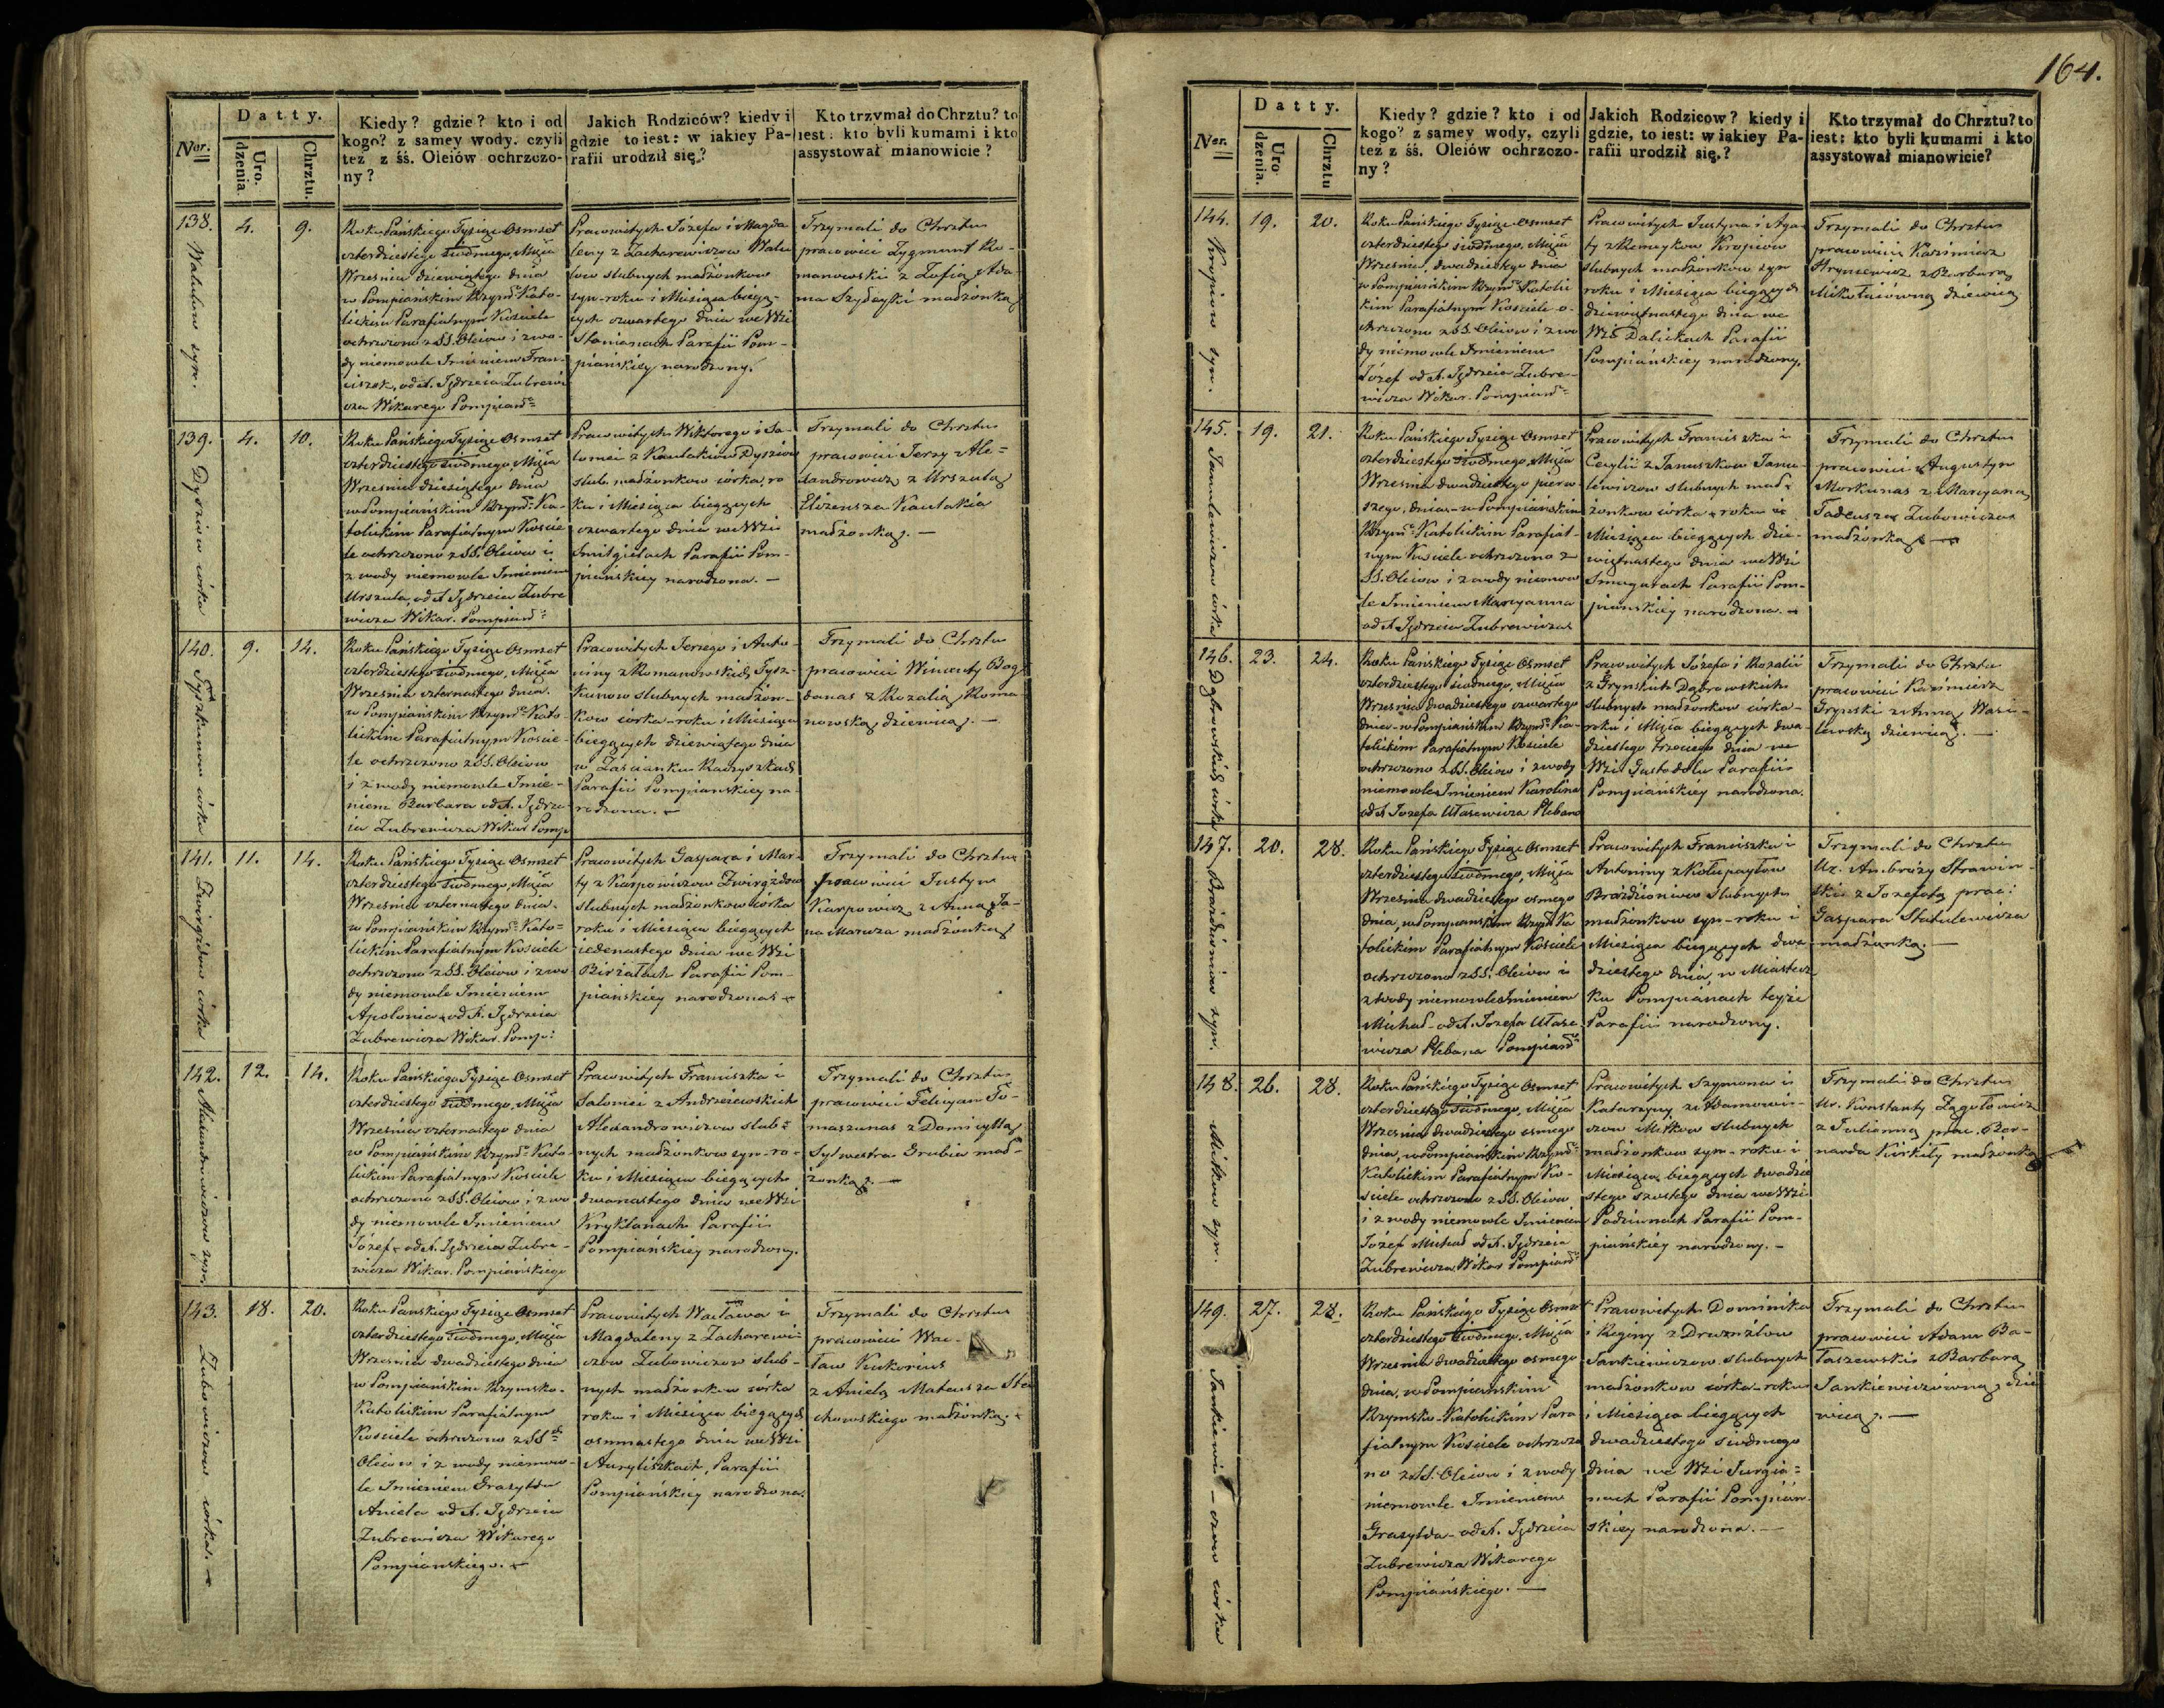 Ner.
Datty.
Uro. dzenia.
Chrztu.
Kiedy? gdzie? kto i od
kogo? z samey wody. czyli
też z śś. Oleiów ochrzczo-
ny?
Jakich Rodziców? kiedy i
gdzie to iest: w iakiey Pa-
rafii urodził się?
Kto trzymał do Chrztu? to
iest: kto byli kumami i kto
assystował mianowicie?
138.
4.
9.
Roku Pańskiego Tysiąc Osmset
czterdziestego siodmego, Msca
Wrzesnia dziewiątego dnia
w Pompiańskim Rzymc Kato-
lickim Parafialnym Kosciele
ochrzczono z SS. Oleiow i z wo-
dy niemowle Imieniem Fran-
ciszek, od X. Jędrzeia Zubrewi
cza Wikarego Pompiań
Pracowitych Józefa i Magda
leny z Zacharewiczow
slubnych małżonkow
syn - roku i Miesiąca bieżą-
cych czwartego dnia we Wsi
Parafii Pom-
piańskiey narodzony.
Trzymali do Chrztu
pracowici Zygmunt Ro-
manowski z Zofią Ada
ma Szydeyki małżonką
139.
4.
10.
Dysziow córka
Roku Pańskiego Tysiąc Osmset
czterdziestego siodmego Msca
Wrzesnia dziesiątego dnia
w Pompiańskim Rzymc Ka-
tolickim Parafialnym Koscie
le ochrzczono z SS. Oleiow i
z wody niemowle Imieniem
Urszula, od X. Jędrzeia Zubre
wicza Wikar. Pompiań
Pracowitych Wiktorego i Sa-
lomei z Kaulakiow Dysziow
slub. małżonkow córka, ro
ku i Miesiąca bieżących
czwartego dnia we Wsi
Smilgielach Parafii Pom-
piańskiey narodzona. -
Trzymali do Chrztu
pracowici Jerzy Ale=
xandrowicz z Urszulą
Kaulakia
małżonką. -
140.
9.
14.
Tyszkunow córka
Roku Pańskiego Tysiąc Osmset
czterdziestego siodmego, Msca
Wrzesnia czternastego dnia.
w Pompiańskim Rzymc Kato-
lickim Parafialnym Koscie-
le ochrzczono z SS. Oleiow
i z wody niemowle Imie-
niem Barbara od X. Jędrze
ia Zubrewicza Wikar Pomp
Pracowitych Jerzego i Anto-
niny z Romanowskich Tysz-
kunow slubnych małżon-
kow córka - roku i Miesiąca
bieżących dziewiątego dnia
w Zascianku Raczyszkach
Parafii Pompianskiey na-
rodzona. -
Trzymali do Chrztu
pracowici Wincenty Bog
danas z Rozalią Roma
nowską dziewicą. -
141.
11.
14.
Zwirgżdow córka
Roku Pańskiego Tysiąc Osmset
czterdziestego siodmego, Msca
Wrzesnia czternastego dnia.
w Pompiańskim Rzymc Kato=
lickim Parafialnym Kosciele
ochrzczono z SS. Oleiow i z wo
dy niemowle Imieniem
Apolonia, od X. Jędrzeia
Zubrewicza Wikar. Pomp:
Pracowitych Gaspara i Mar-
ty z Karpowiczow Zwirgżdow
slubnych małżonkow córka
roku i Miesiąca bieżących
iedenastego dnia we Wsi
Birżałach Parafii Pom-
piańskiey narodzona. -
Trzymali do Chrztu
pracowici Justyn
Karpowicz z Anną Ja-
na małżonką
142.
12.
14.
Alexandrowiczow syn.
Roku Pańskiego Tysiąc Osmset
czterdziestego siodmego, Msca
Wrzesnia czternastego dnia
w Pompiańskim Rzymc Kato-
lickim Parafialnym Kosciele
ochrzczono z SS. Oleiow i z wo
dy niemowle Imieniem
Józef, od X. Jędrzeia Zubre-
wicza Wikar. Pompiańskiego
Pracowitych Franciszka i
Salomei z Andrzeiewskich
Alexandrowiczow slub=
nych małżonkow syn - ro-
ku i Miesiąca bieżących
dwunastego dnia we Wsi
Kryklanach Parafii
Pompiańskiey narodzony.
Trzymali do Chrztu
pracowici Felicyan To-
maszunas z Domicellą
Sylwestra Grubia mał-
żonką. -
143.
18.
20.
Zubowiczow córka. -
Roku Pańskiego Tysiąc Osmset
czterdziestego siodmego, Msca
Wrzesnia dwudziestego dnia
w Pompiańskim Rzymsko-
Katolickim Parafialnym
Kosciele ochrzczono z SS
Oleiow i z wody niemow-
le Imieniem Grasylda
Aniela od X. Jędrzeia
Zubrewicza Wikarego
Pompianskiego. -
Pracowitych Wacława i
Magdaleny z Zacharewi-
czow Zubowiczow slub-
nych małżonkow córka
roku i Miesiąca bieżących
osmnastego dnia we Wsi
Auryliszkach, Parafii
Pompiańskiey narodzona.
Trzymali do Chrztu
pracowici Wac-
ław Kukorius
z Anielą Mateusza Sta
chowskiego małżonką. -
164.
Ner.
Datty.
Uro dzenia.
Chrztu
Kiedy? gdzie? kto i od
kogo? z samey wody, czyli
też z śś. Oleiów ochrzczo-
ny?
Jakich Rodziców? kiedy i
gdzie, to iest: w iakiey Pa-
rafii urodził się?
Kto trzymał do Chrztu? to
iest: kto byli kumami i kto
assystował mianowicie?
144.
19.
20.
Kropiow syn.
Roku Pańskiego Tysiąc Osmset
czterdziestego siodmego, Msca
Wrzesnia, dwudziestego dnia
w Pompiańskim Rzymc Katolic
kim Parafialnym Kosciele o-
chrzczono z SS. Oleiow i z wo
dy niemowle Imieniem
Józef od X. Jędrzeia Zubre-
wicza Wikar. Pompiań
Pracowitych Justyna i Aga-
ty z Remeykow Kropiow
slubnych małżonkow syn
roku i Miesiąca bieżących
dziewiętnastego dnia we
Wsi Dalickach Parafii
Pompiańskiey narodzony.
Trzymali do Chrztu
pracowici Kazimierz
Hryncewicz z Barbarą
Mikołaiówną dziewicą
145.
19.
21.
Jamulewiczow córka
Roku Pańskiego Tysiąc Osmset
czterdziestego siodmego, Msca
Wrzesnia dwudziestego pierw
szego, dnia - w Pompiańskim
Rzymc Katolickim Parafial-
nym Kosciele ochrzczono z
SS. Oleiow i z wody niemow
le Imieniem Maryanna
od X. Jędrzeia Zubrewicza
Pracowitych Franciszka i
Cecylii z Januszkow Jamu-
lewiczow slubnych mał-
żonkow córka, roku i
Miesiąca bieżących dzie-
więtnastego dnia we Wsi
Smugarach Parafii Pom-
piańskiey narodzona. -
Trzymali do Chrztu
pracowici Augustyn
Morkunas z Maryaną
Tadeusza Zubowicza
małżonką -
146.
23.
24.
Dąbrowskich córka
Roku Pańskiego Tysiąc Osmset
czterdziestego siodmego, Msca
Wrzesnia dwudziestego czwartego
dnia - w Pompiańskim Rzymc Ka-
tolickim Parafialnym Kosciele
ochrzczono z SS. Oleiow i z wody
niemowle Imieniem Karolina
od X Jozefa Ułasewicza Plebana
Pracowitych Józefa i Rozalii
z Grynskich Dąbrowskich
slubnych małżonkow córka -
roku i Msca bieżących dwu-
dziestego trzeciego dnia we
Wsi Gustodolu Parafii
Pompiańskiey narodzona.
Trzymali do Chrztu
pracowici Kazimierz
Grynski z Anną Wasi-
lewską dziewicą. -
147.
20.
28.
Brazdżioniow syn.
Roku Pańskiego Tysiąc Osmset
czterdziestego siodmego, Msca
Wrzesnia dwudziestego osmego
dnia, w Pompiańskim Rzymc Ka
tolickim Parafialnym Kosciele
ochrzczono z SS. Oleiow i
z wody niemowle Imieniem
Michał - od X. Jozefa Ułase
wicza Plebana Pompiań
Pracowitych Franciszka i
Antoniny z Kołupayłow
Brażdżioniow slubnych
małżonkow syn - roku i
Miesiąca bieżących dwu
dziestego dnia, w Miastecz
ku Pompianach teyże
Parafii narodzony.
Trzymali do Chrztu
Ur. Ambroży Strawin-
ski z Jozefatą prac:
Gaspara Statulewicza
małżonką. -
148.
26.
28.
Mitkow syn.
Roku Pańskiego Tysiąc Osmset
czterdziestego siodmego, Msca
Wrzesnia dwudziestego osmego
dnia, w Pompiańskim Rzymc
Katolickim Parafialnym Ko-
sciele ochrzczono z SS. Oleiow
i z wody niemowle Imieniem
Józef Michał od X. Jędrzeia
Zubrewicza Wikar Pompiań
Pracowitych Szymona i
Katarzyny z Adamowi-
czow Mitkow slubnych
małżonkow syn - roku i
Miesiąca bieżących dwudzie
stego szostego dnia we Wsi
Podziunach Parafii Pom-
piańskiey narodzony. -
Trzymali do Chrztu
Ur. Konstanty Zagołowicz
z Julianną prac. Ber-
narda Kirkiły małżonką
149.
27.
28.
Jankiewi-czow córka
Roku Pańskiego Tysiąc Osmset
czterdziestego siodmego, Msca
Wrzesnia dwudziestego osmego
dnia, w Pompiańskim
Rzymsko-Katolickim Para
fialnym Kosciele ochrzczo
no z SS. Oleiow i z wody
niemowle Imieniem
Grasylda - od X. Jędrzeia
Zubrewicza Wikarego
Pompiańskiego. -
Pracowitych Dominika
i Reginy z
Jankiewiczow slubnych
małżonkow córka - roku
i Miesiąca bieżących
dwudziestego siodmego
dnia we Wsi Jurgia=
nach Parafii Pompiań-
skiey narodzona. -
Trzymali do Chrztu
pracowici Adam Ba-
łaszewski z Barbarą
Jankiewiczówną, dzie
wicą. -